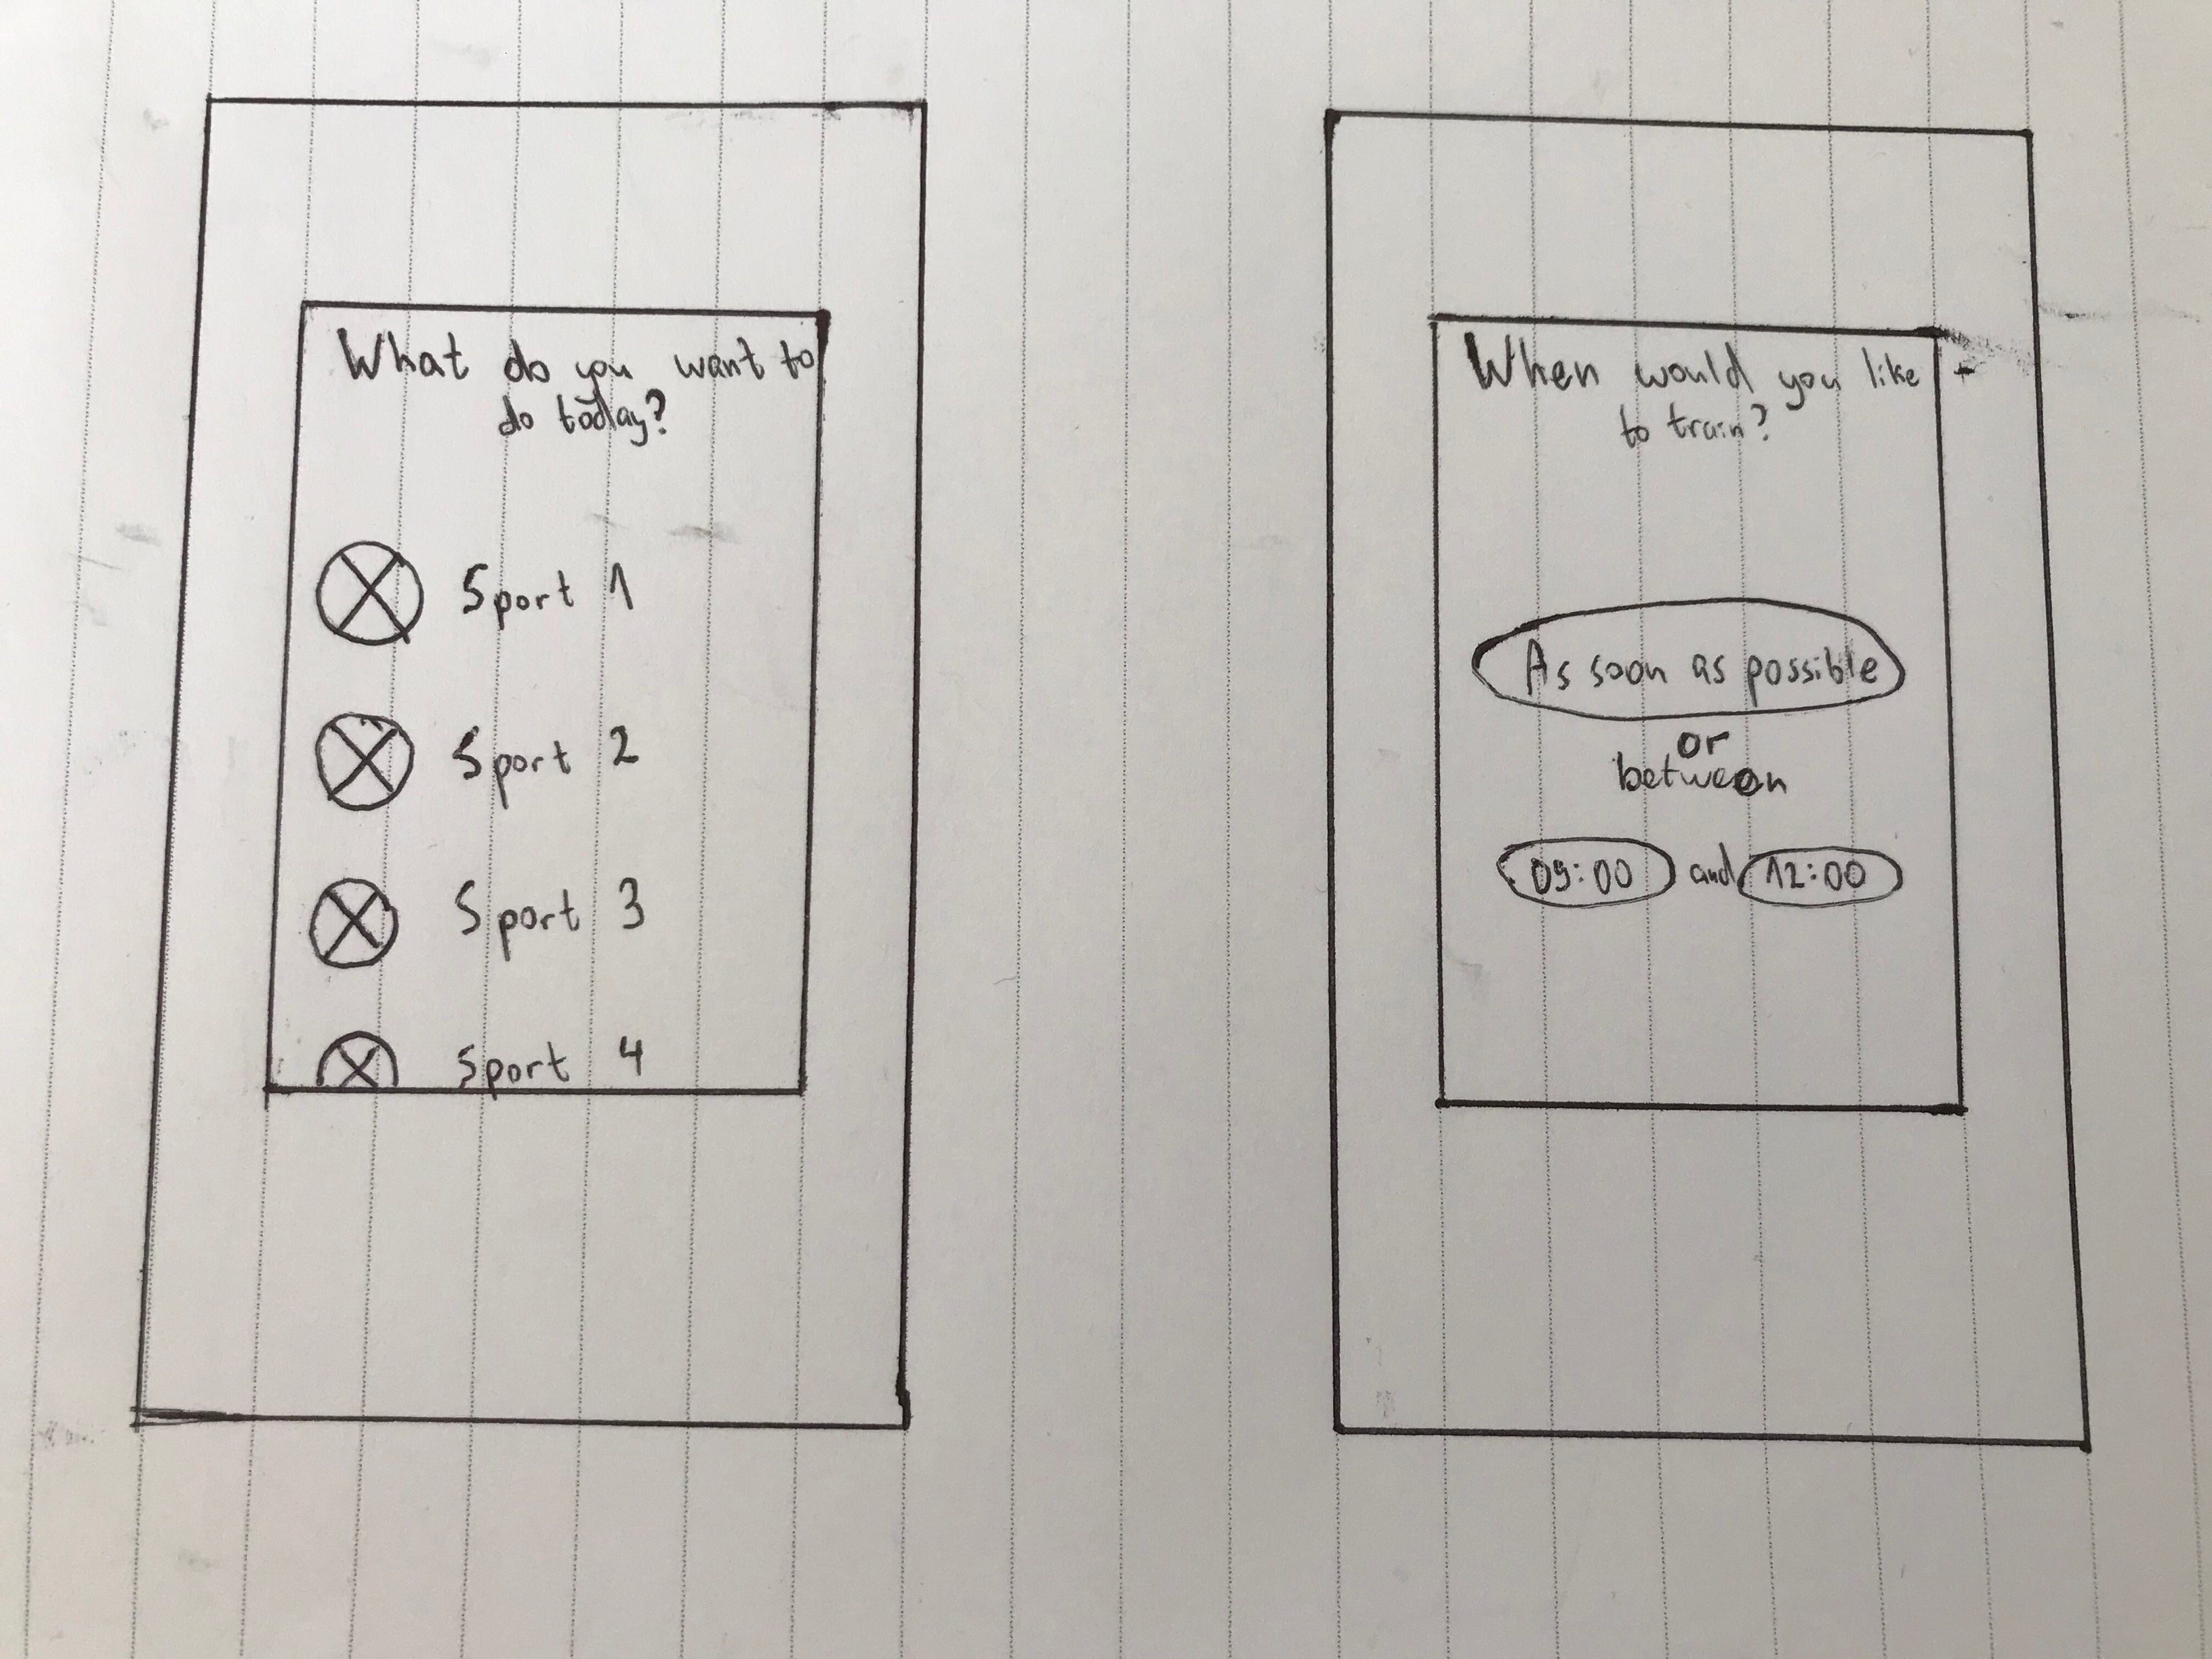 What do you want to
do today?
Sport 1
Sport 2
Sport 3
Sport 4
When would you like
to train?
As soon as possible
or
between
09:00 and 12:00